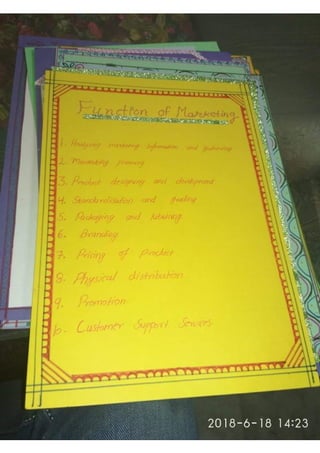 Function of Marketing
1. Analysing marketing information and gathering
2. Marketing planning
3. Product designing and development
4. Standardisation and grading
5. Packaging and labelling
6. Branding
7. Pricing of product
8. Physical distribution
9. Promotion
10. Customer Support Services
2018-6-18 14:23